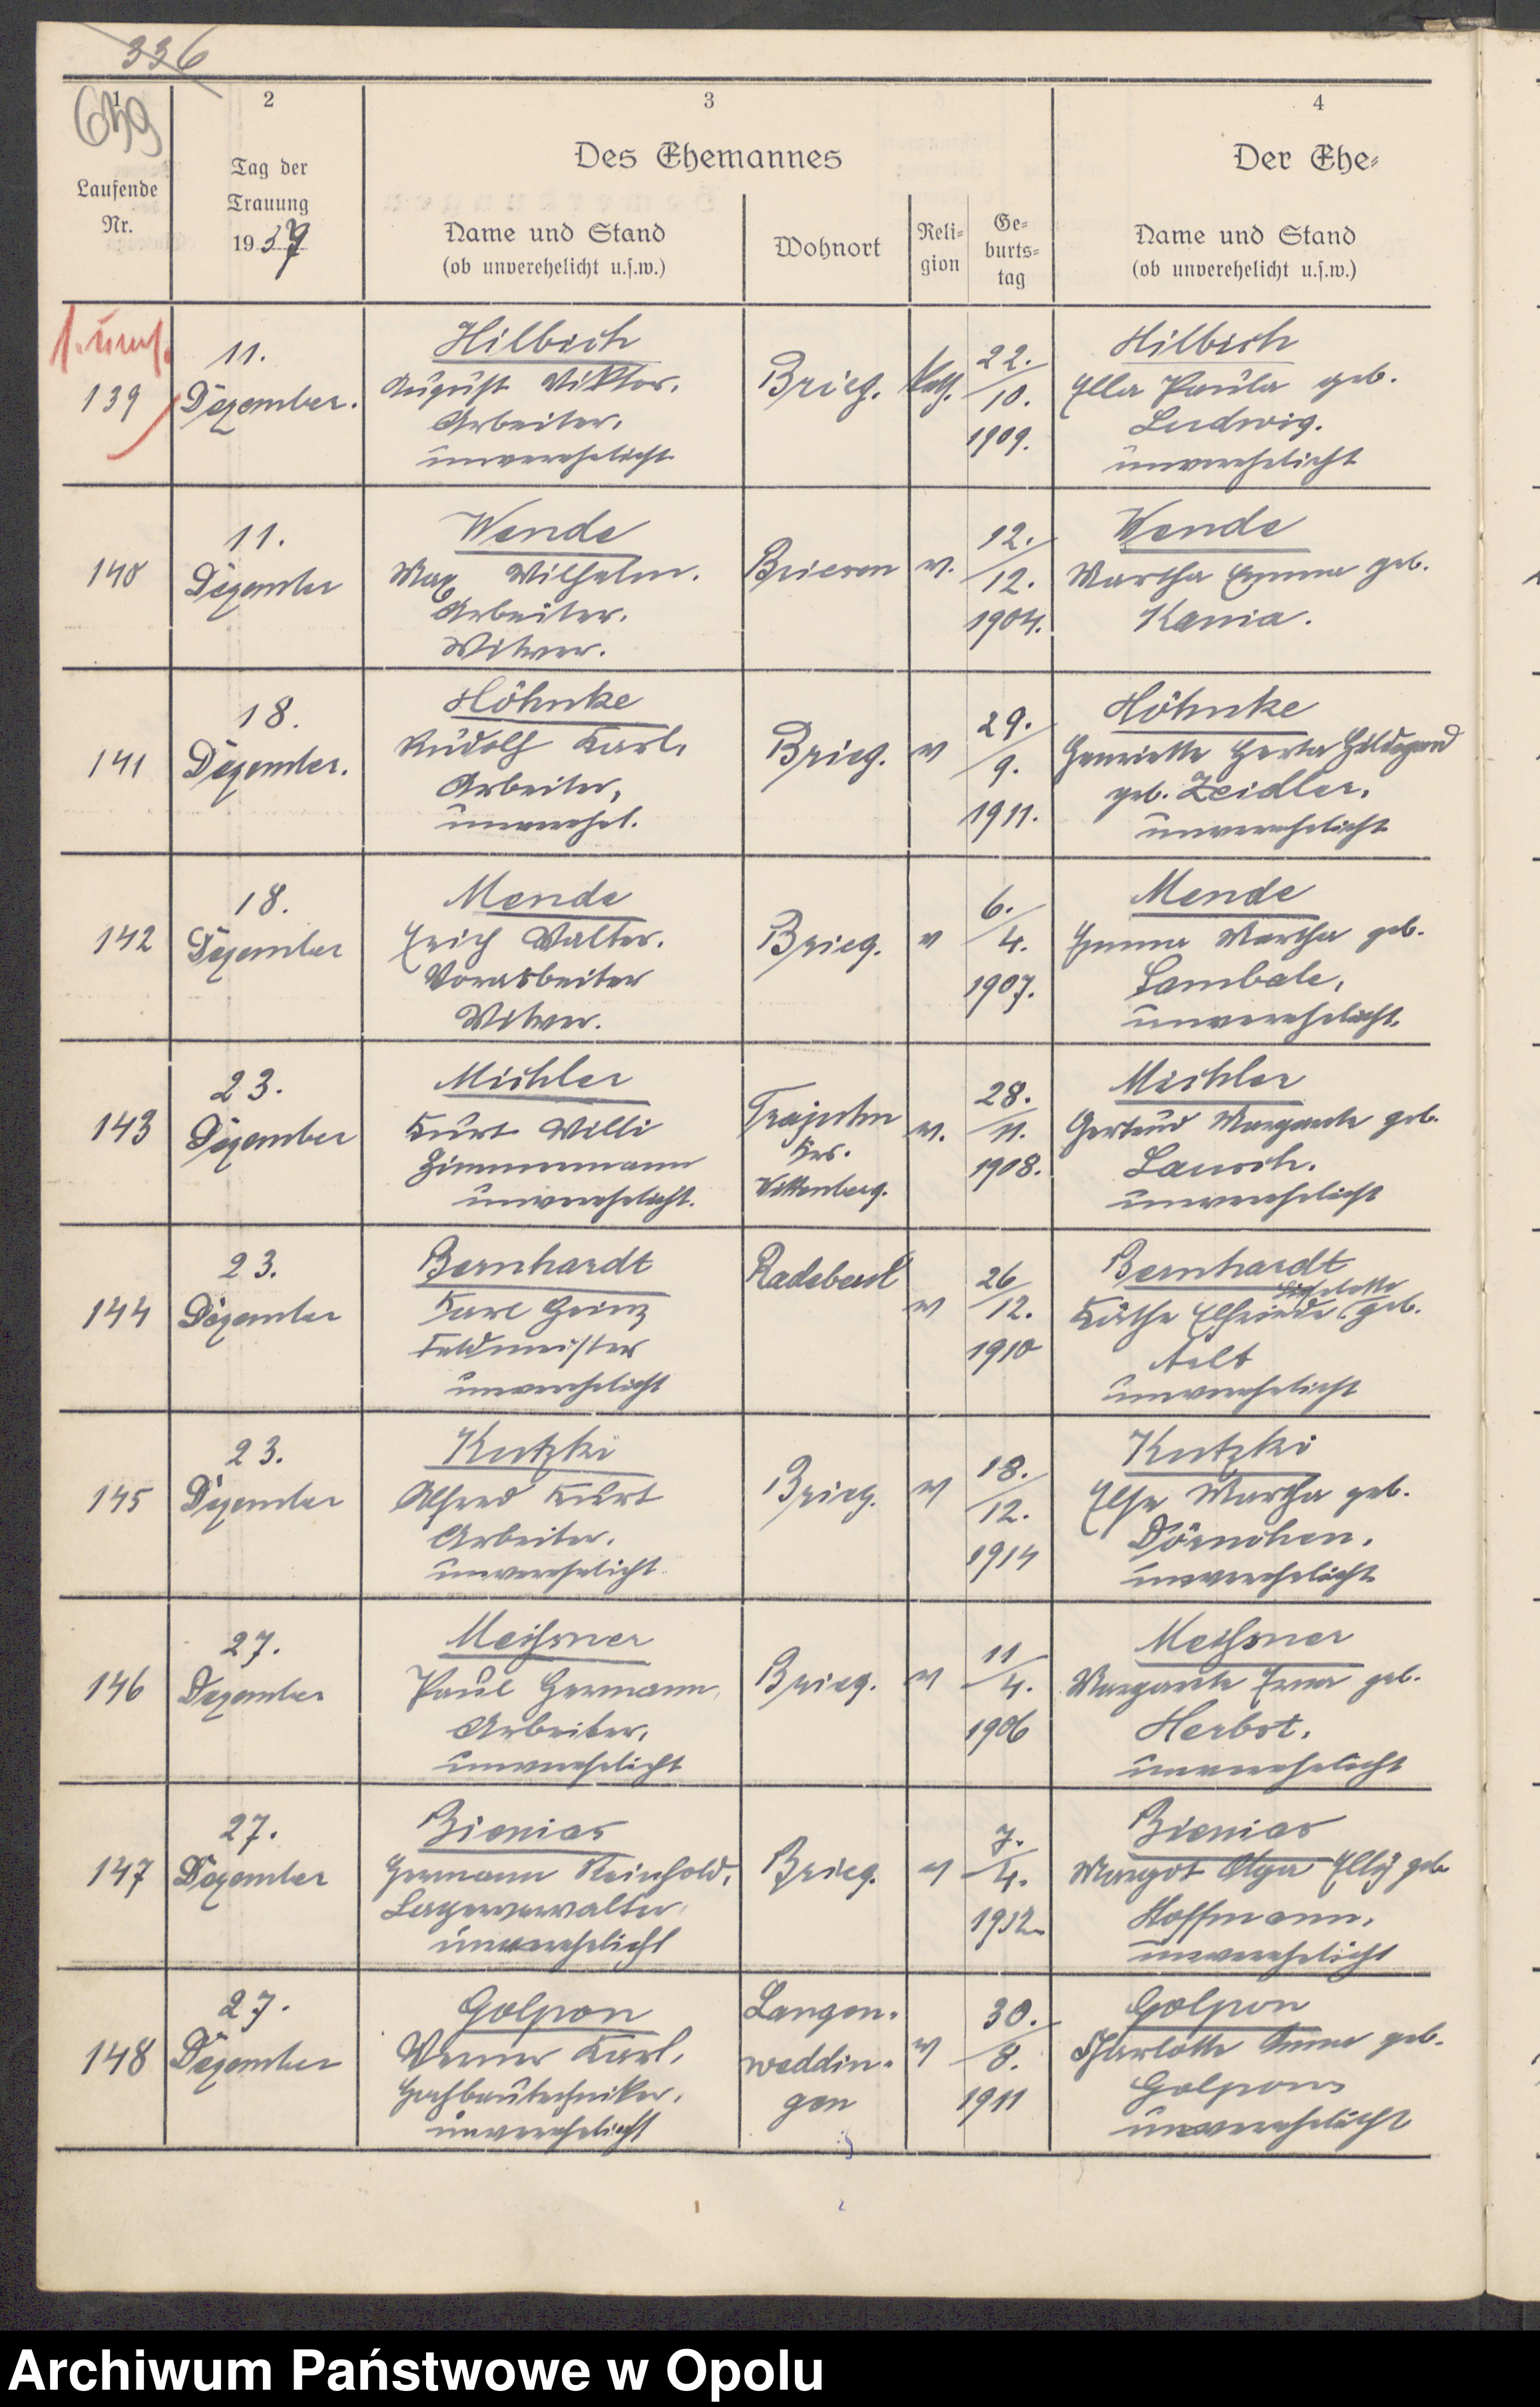 336
639
1
2
3
4
Des Ehemannes
Der Ehe-
Laufende
Nr.
Tag der
Trauung
1937
Name und Stand
(ob unverehelicht u.s.w.)
Wohnort
Reli-
gion
Ge-
burts-
tag
Name und Stand
(ob unverehelicht u.s.w.)
139
11.
Dezember.
Hilbich
August Viktor.
Arbeiter,
unverehelicht
Brieg.
Kath.
22.
10.
1909.
Hilbich
Ella Paula geb.
Ludwig.
unverehelicht
140
11.
Dezember
Wende
Max Wilhelm.
Arbeiter.
Witwer.
Briesen
ev.
12.
12.
1904.
Wende
Martha Emma geb.
Kania.
141
18.
Dezember.
Höhnke
Rudolf Karl,
Arbeiter,
unverehel.
Brieg.
ev
29.
9.
1911.
Höhnke
Henriette Herta Hildegard
geb. Zeidler,
unverehelicht
142
18.
Dezember
Mende
Erich Walter.
Vorarbeiter
Witwer.
Brieg.
ev
6.
4.
1907.
Mende
Emma Martha geb.
Sambale,
unverehelicht.
143
23.
Dezember
Michler
Kurt Willi
Zimmermann
unverehelicht.
Trajuhn
Krs.
Wittenberg.
ev.
28.
11.
1908.
Michler
Gertrud Margarete geb.
Lausch.
unverehelicht
144
23.
Dezember
Bernhardt
Karl Heinz
Feldmeister
unverehelicht
Radebeul
ev
26
12.
1910
Bernhardt
Liselotte
Käthe Elfriede geb.
Aelt
unverehelicht
145
23.
Dezember
Kutzki
Alfred Kurt
Arbeiter.
unverehelicht
Brieg.
ev
18.
12.
1914
Kutzki
Else Martha geb.
Dörnchen.
unverehelicht
146
27.
Dezember
Meißner
Paul Hermann,
Arbeiter,
unverehelicht
Brieg.
ev
11
4.
1906
Meißner
Margarete Erna geb.
Herbst.
unverehelicht
147
27.
Dezember
Bienias
Hermann Reinhold,
Lagerverwalter,
unverehelicht
Brieg.
ev
7.
4.
1912
Bienias
Margot Olga Elly geb
Hoffmann,
unverehelicht
148
27.
Dezember
Golpon
Werner Karl,
Hochbautechniker,
unverehelicht
Langen-
weddin-
gen
ev
30.
8.
1911
Golpon
Charlotte Anna geb.
Golpon
unverehelicht
Archiwum Państwowe w Opolu